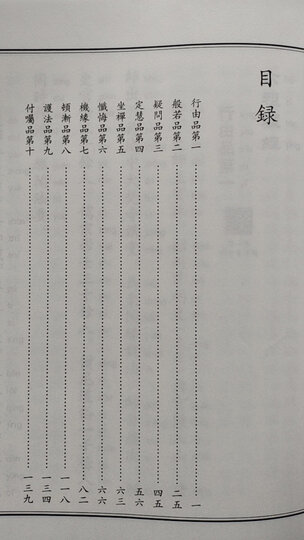 目録
行由品第一 一
般若品第二 二五
疑問品第三 四五
定慧品第四 五六
坐禪品第五 六三
懺悔品第六 六六
機緣品第七 八二
頓漸品第八 一一八
護法品第九 一三四
付囑品第十 一三九